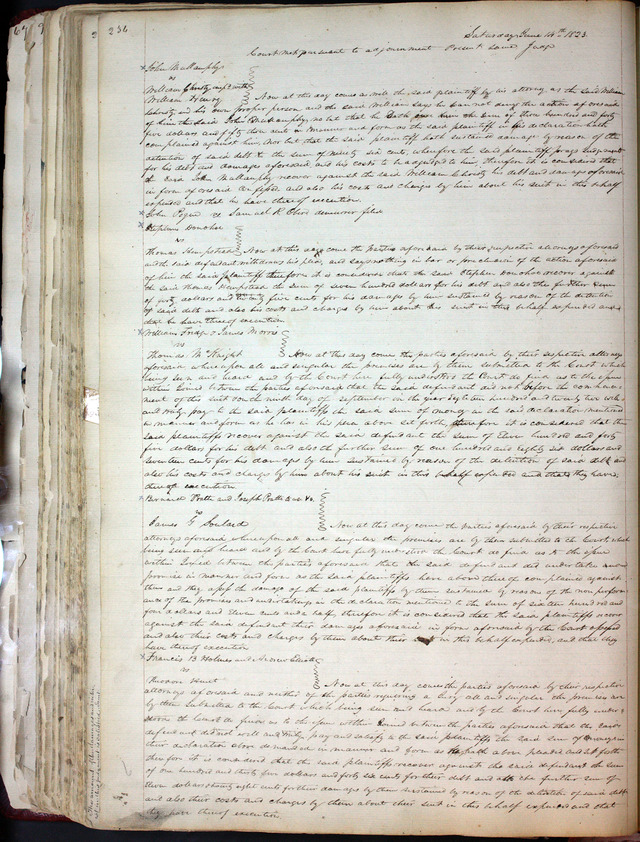 236
Saturday June 14th 1823
Court met pursuant to adjournment Present same Judge
John Mullanphy
vs
William Christy
William Henry
Now at this day comes as well the said plaintiff by his attorney as the said William
Christy and his own proper person and the said William says he can not deny the action aforesaid
of him the said John Mullanphy, nor but that he doth owe him the sum of three hundred and forty
five dollars and fifty three cents in manner and form as the said plaintiff in his declaration hath
complained against him, Nor but that the said plaintiff hath sustained damage by reason of the
detention of said debt to the sum of ninety six cents, wherefore the said plaintiff prays Judgment
for his debt and damages aforesaid and his costs to be adjudged to him, therefore it is considered that
the said John Mullanphy recover against the said William Christy his debt and damages aforesaid
in form aforesaid confessed and also his costs and charges by him about his suit in this behalf
expended and that he have thereof execution
John vs Samuel R Ober demurrer filed
Stephen Donohoe
vs
Thomas Hempstead
Now at this day come the Parties aforesaid by their respective attorneys aforesaid
and the said defendant withdraws his plea, and says nothing in bar or preclusion of the action aforesaid
of him the said plaintiff therefore it is considered that the said Stephen Donohoe recover against
the said Thomas Hempstead the sum of seven hundred dollars for his debt and also the further sum
of forty dollars and twenty five cents for his damages by him sustained by reason of the detention
of said debt and also his costs and charges by him about this suit in this behalf expended and
that he have thereof execution
William Tridge & James Morris
vs
Thomas McKnight
Now at this day comes the parties aforesaid by their respective attorneys
aforesaid whereupon all and singular the premises are by them submitted to the Court which
being seen and heard and by the Court here fully understood the Court do find as to the issue
within Joined between the parties aforesaid that the said defendant did not before the commence
ment of this suit on the ninth day of September in the year eighteen hundred and twenty two well
and truly pay to the said plaintiffs the said sum of money in the said declaration mentioned
in manner and form as he has in his plea above set forth, therefore it is considered that the
said plaintiffs recover against the said defendant the sum of hundred and forty
five dollars for his debt and also the further sum of one hundred and eighty six dollars and
seventeen cents for his damages by him sustained by reason of the detention of said debt and
also his costs and charges by him about his suit in this behalf expended and that they have
thereof execution
Bernard Pratte and Joseph Pratte
vs
James G Soulard
Now at this day come the Parties aforesaid by their respective
attorneys aforesaid whereupon all and singular the premises are by them submitted to the Court, which
being seen and heard and by the Court here fully understood the Court do find as to the issue
within Joined between the parties aforesaid that the said defendant did undertake and
promise in manner and form as the said plaintiffs have above thereof complained against
him and they assess the damage of the said plaintiffs by them sustained by reasons of the non perform
ance of the promises and undertakings in the declaration mentioned to the sum of sixteen hundred and
four dollars and eleven cents and a half, therefore it is considered that the said plaintiffs recover
against the said defendant their damages aforesaid in form aforesaid by the Court assessed
and also their costs and charges by them about their suit in this behalf expended, and that they
have thereof execution
Francis B Holmes and Andrew Elliott
vs
Theodore Hunt
Now at this day come the parties aforesaid by their respective
attorneys aforesaid and neither of the parties requiring a jury all and singular the premises are
by them submitted to the Court which being seen and heard and by the Court here fully under
stood the Court do find as to the issue within Joined between the parties aforesaid that the said
defendant did not well and truly pay and satisfy to the said plaintiffs the said sum of money in
their declaration above demanded in manner and form as he hath above pleaded and set forth
therefore it is considered that the said plaintiffs recover against the said defendant the sum
of one hundred and thirty five dollars and forty six cents for their debt and also the further sum of
dollars twenty eight cents for their damages by them sustained by reason of the detention of said debt
and also their costs and charges by them about their suit in this behalf expended and that
they have thereof execution